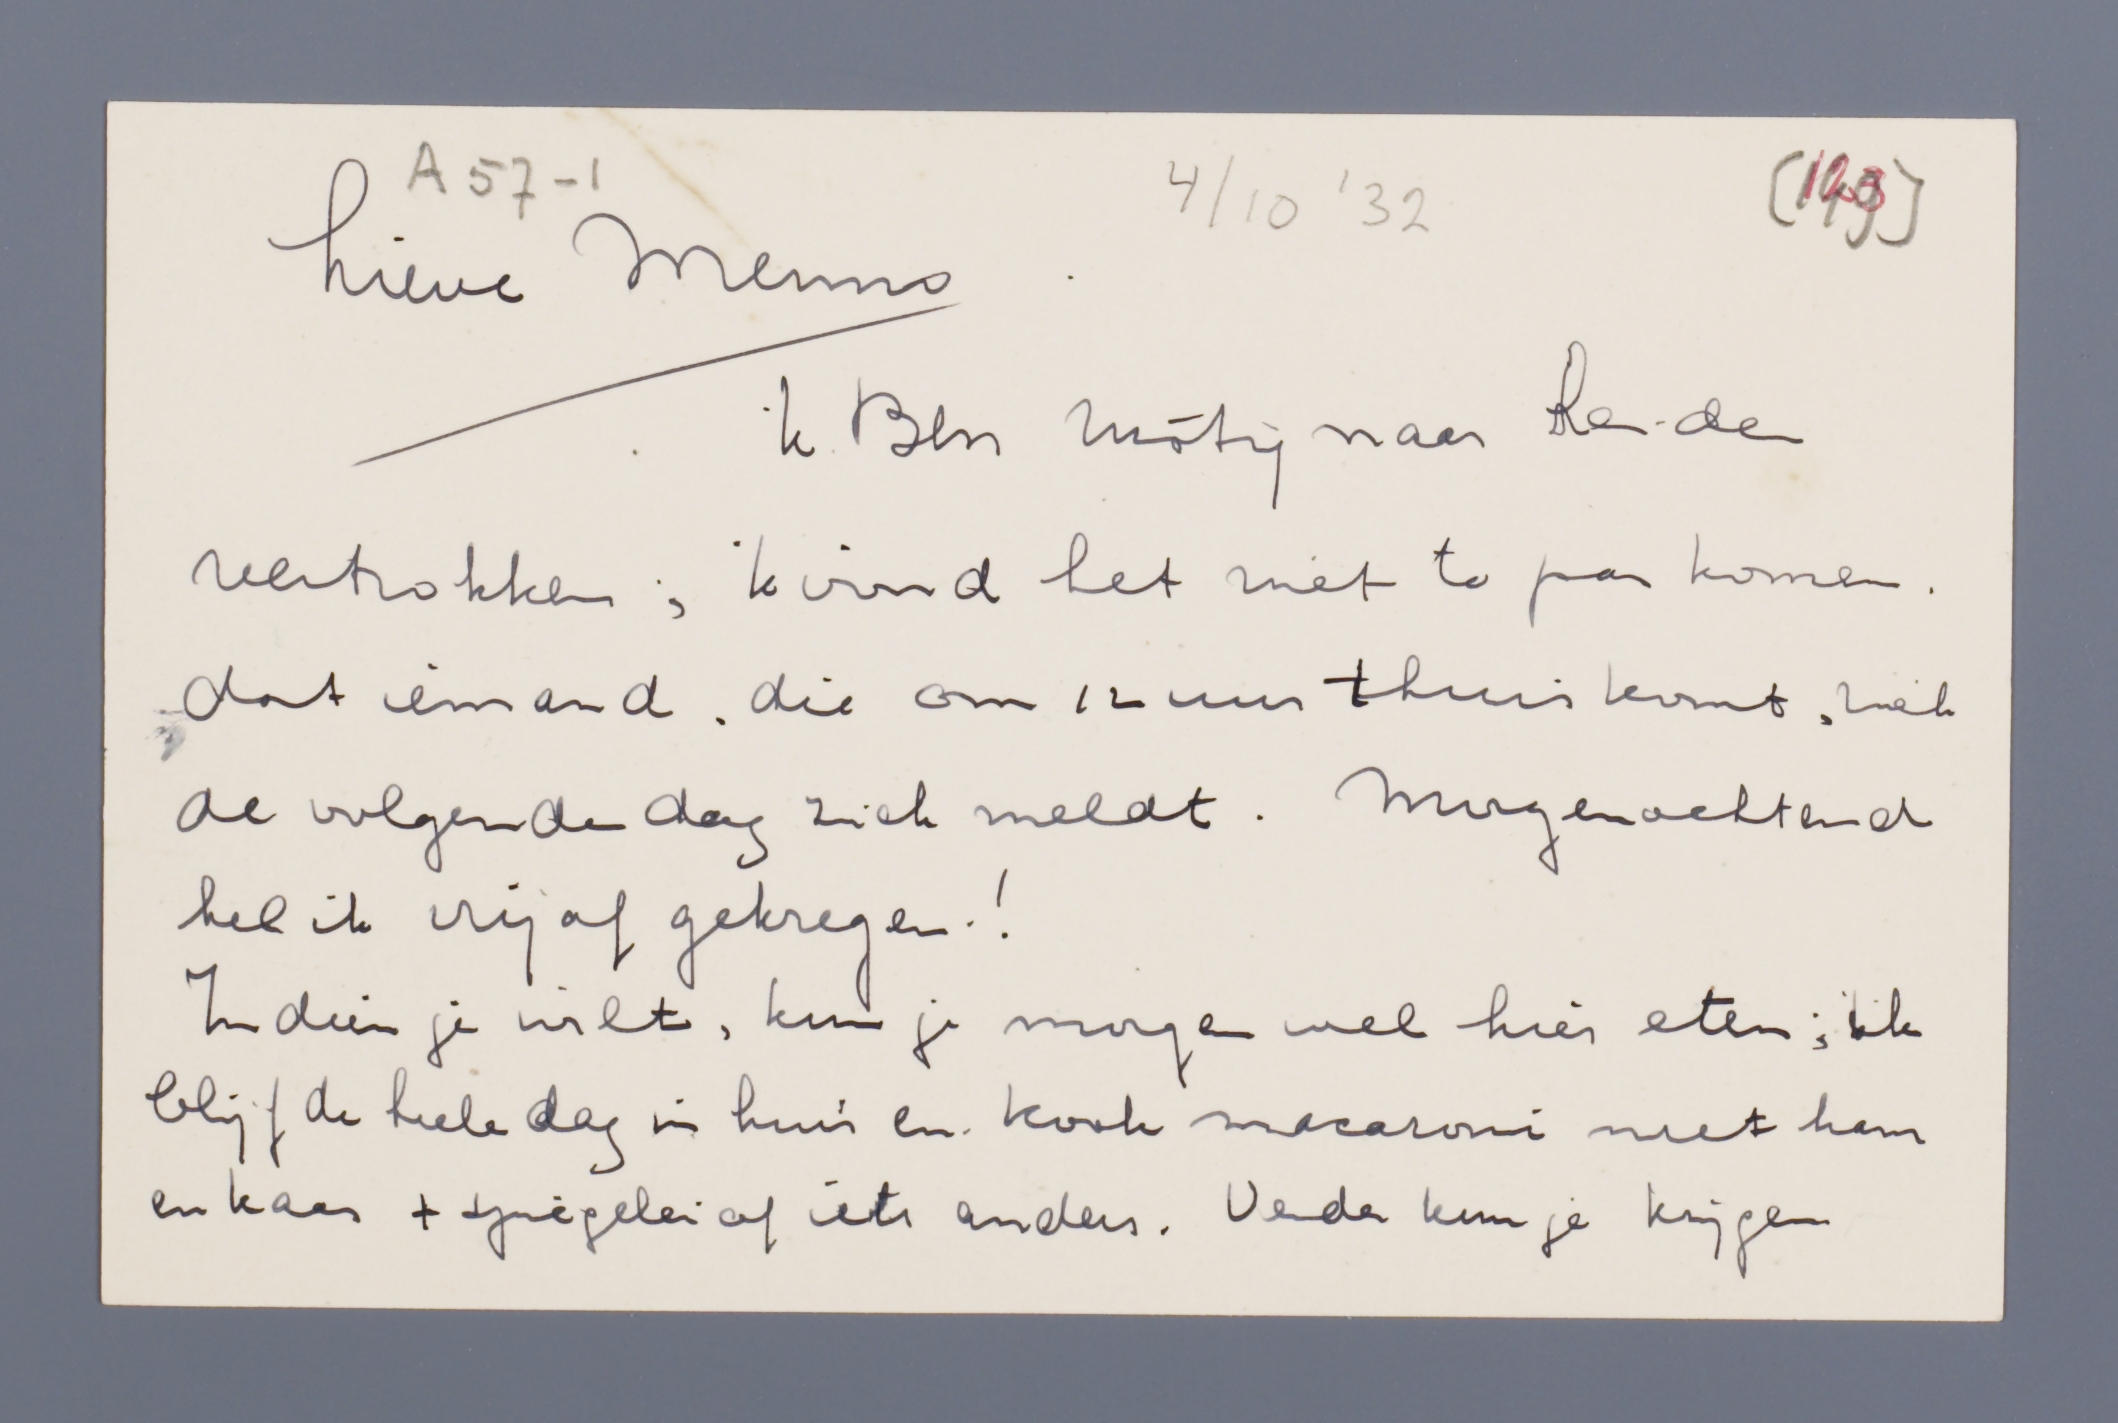 A 57-1
4/10 '32
Lieve Menno
ik Ben naar Leiden
vertrokken; ik vind het niet te pas komen.
dat iemand, die om 12 uur thuis komt,
de volgende dag ziek meldt. Morgenochtend
heb ik vrijaf gekregen!
Indien je wilt, kun je morgen wel hier eten; ik
blijf de hele dag in huis en kook macaroni met ham
en kaas + spiegelei of iets anders. Verder kun je krijgen